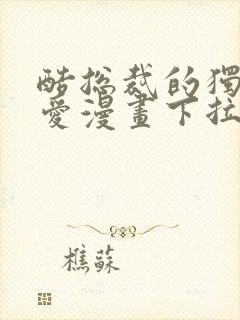 酷总裁的獨
愛漫畫下拉
樵蘇